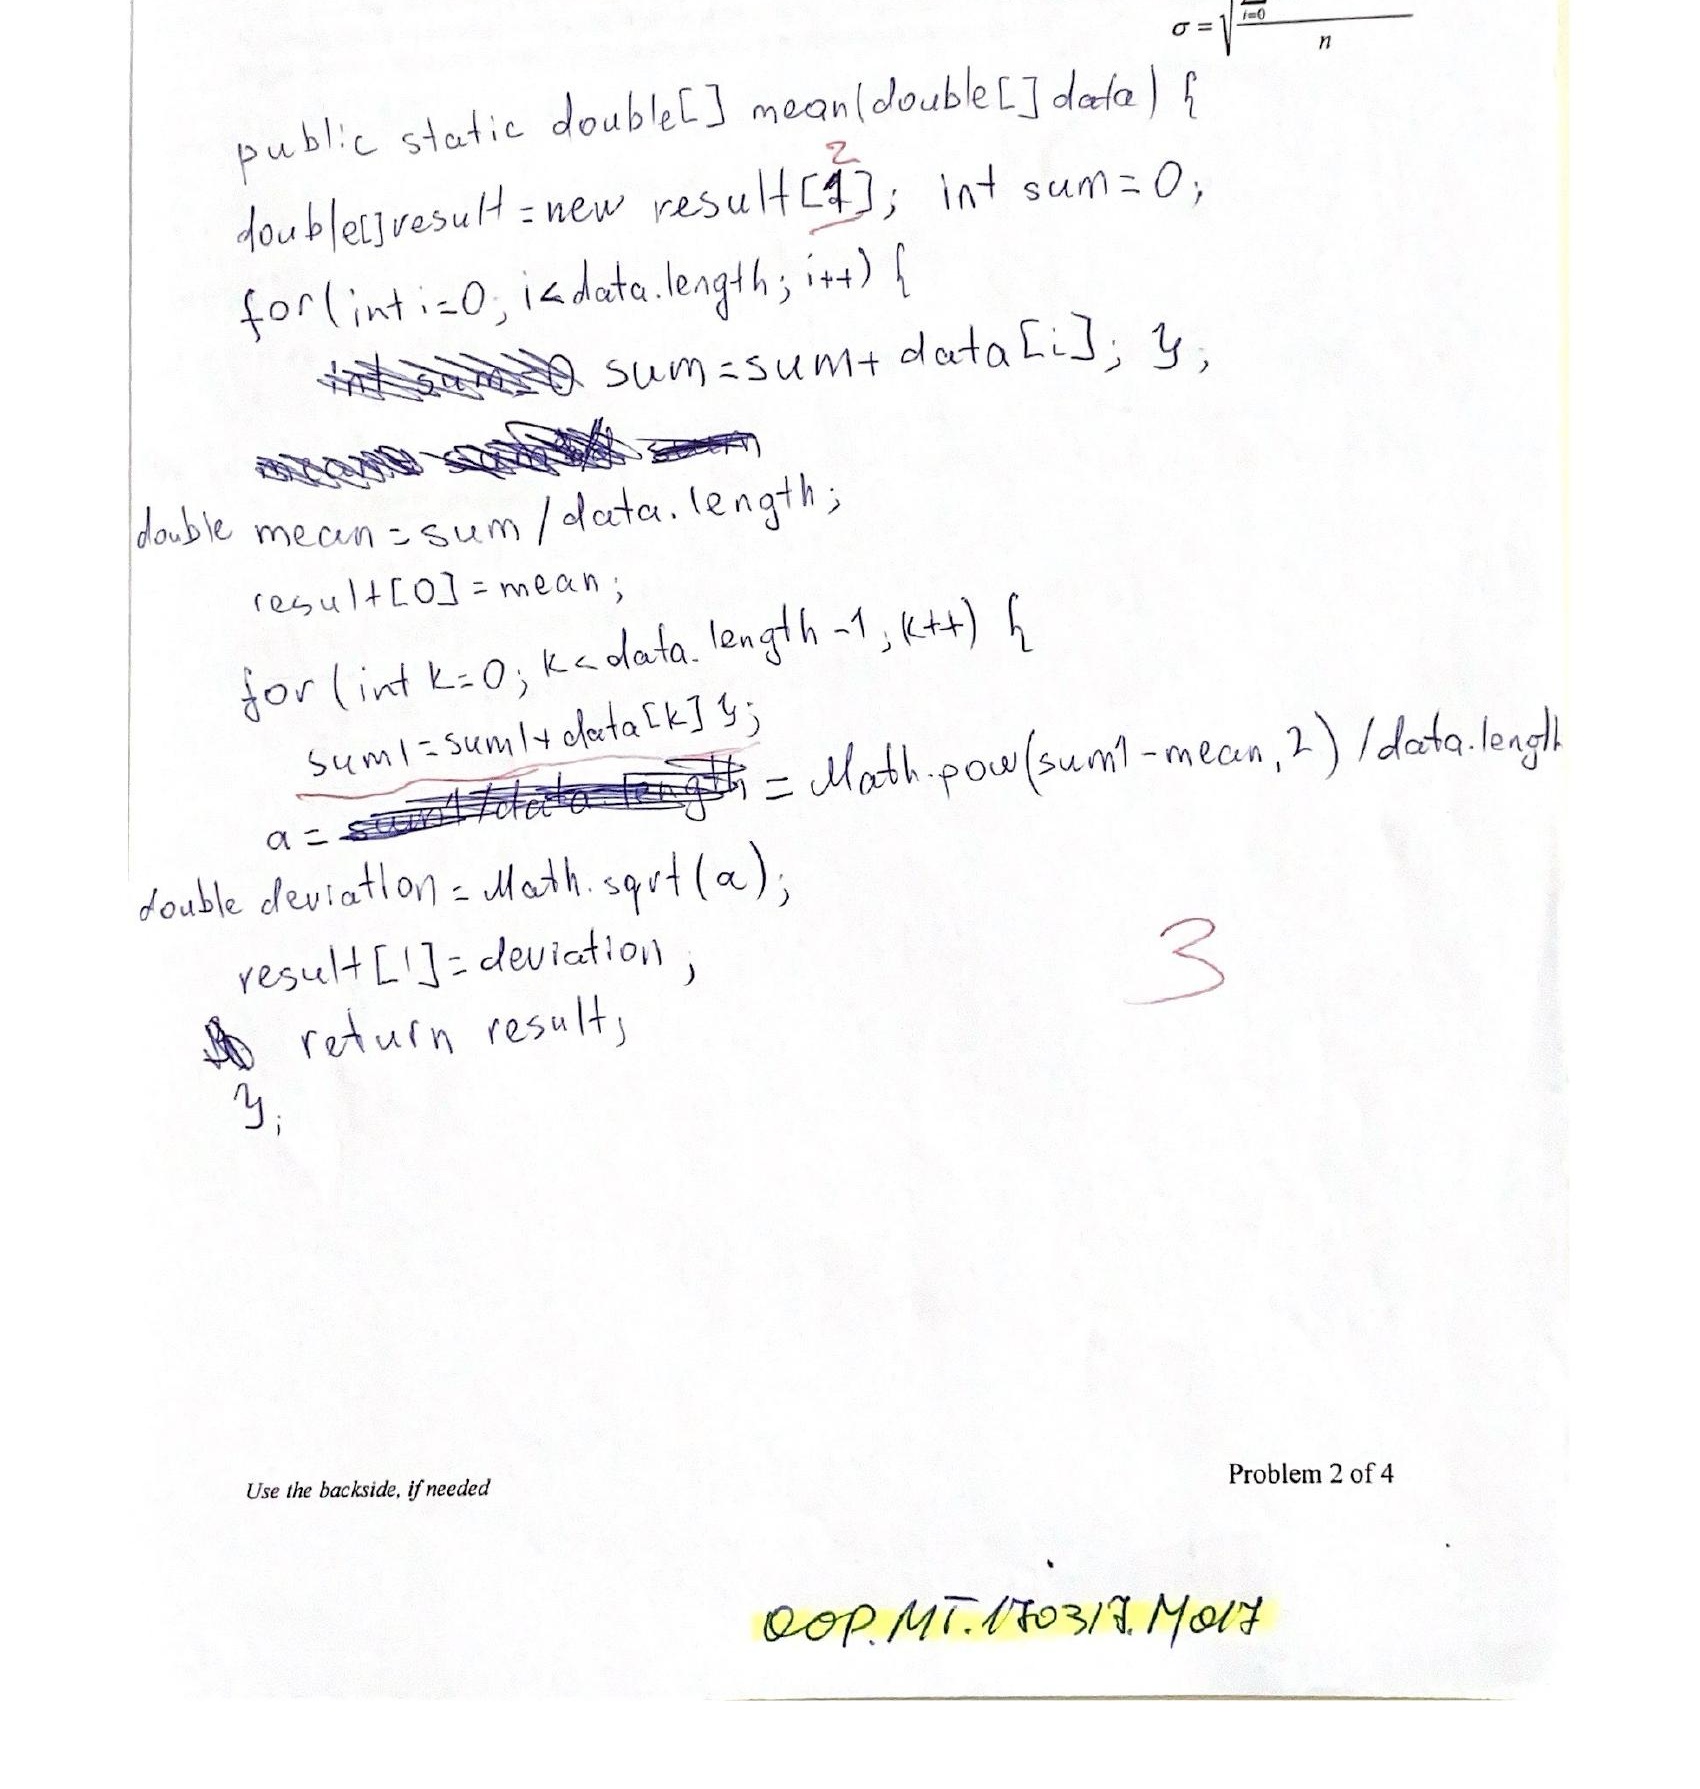 σ = √ i=0
n
public static double[] mean(double[] data) {
2
double[] result = new result[1]; int sum = 0;
for (int i = 0; i < data.length; i++) {
int sum = 0 sum = sum + data[i]; };
double mean = sum / data.length;
result[0] = mean;
for (int k = 0; k < data.length - 1; k++) {
sum1 = sum1 + data[k] };
a = sum1/data.length = Math.pow(sum1 - mean, 2) / data.length
double deviation = Math.sqrt(a);
result[1] = deviation;
return result;
};
3
Use the backside, if needed
Problem 2 of 4
OOP.MT.170317.M017